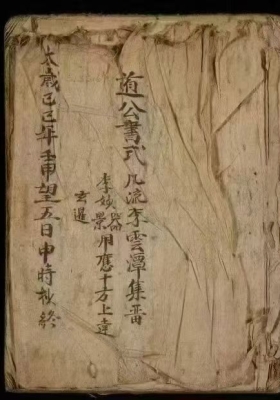 道公書式 凡流李雲潭集
李妙景器用應十方上達
玄暹
太歲己巳年壬申望五日申時抄終